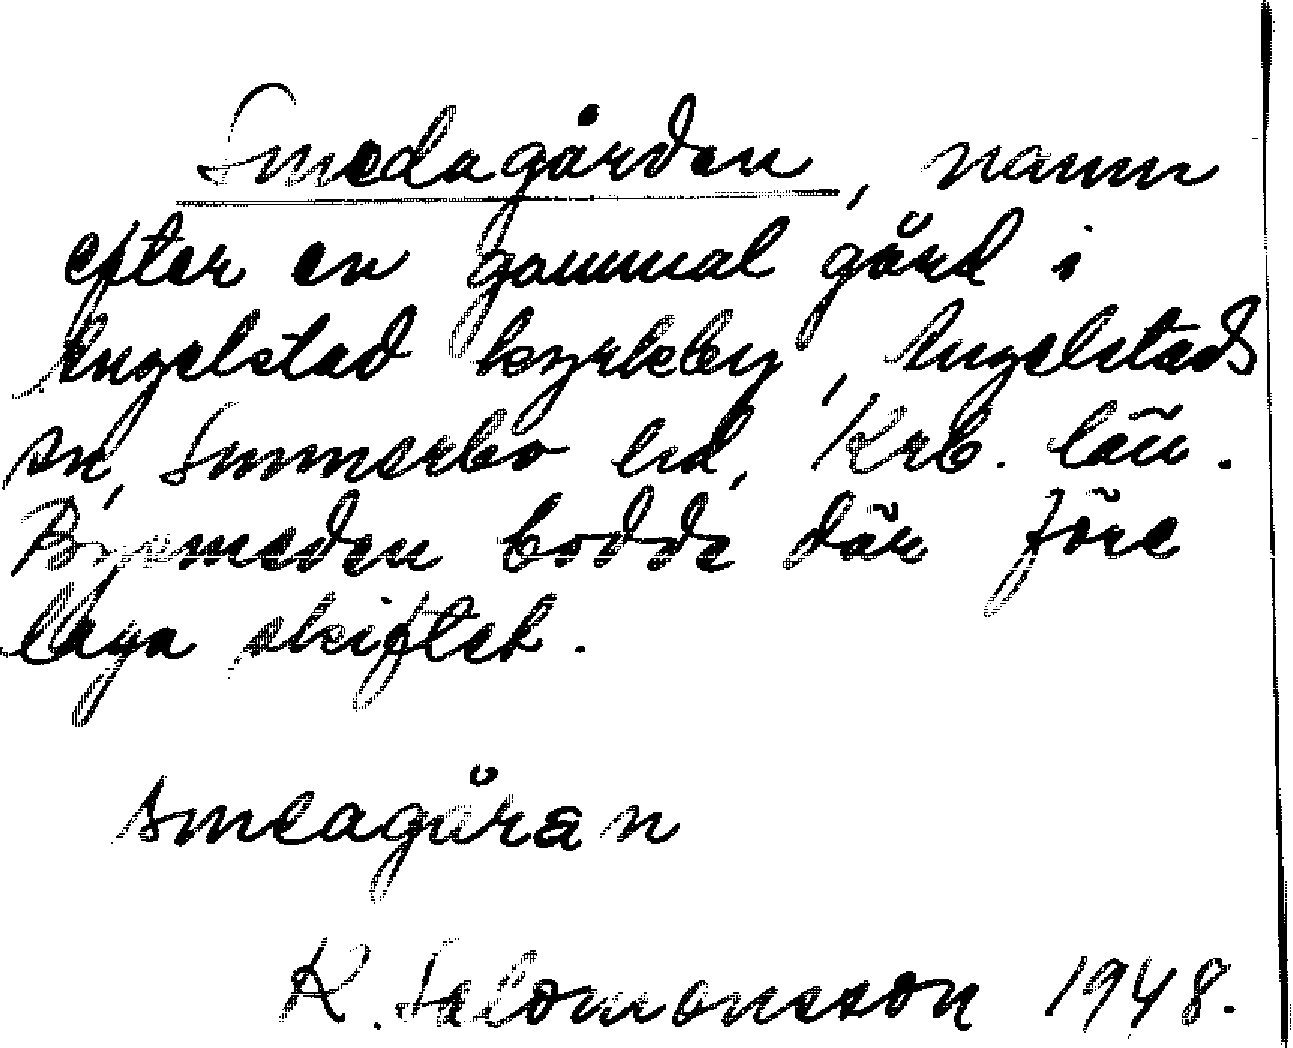 Smedagården, namn
efter en gammal gård i
Angelstad kyrkby, Angelstads
sn, Sunnerbo hd, Krb. län.
Bysmeden bodde där före
laga skiftet.
smeagåran
K. Salomonsson 1948.